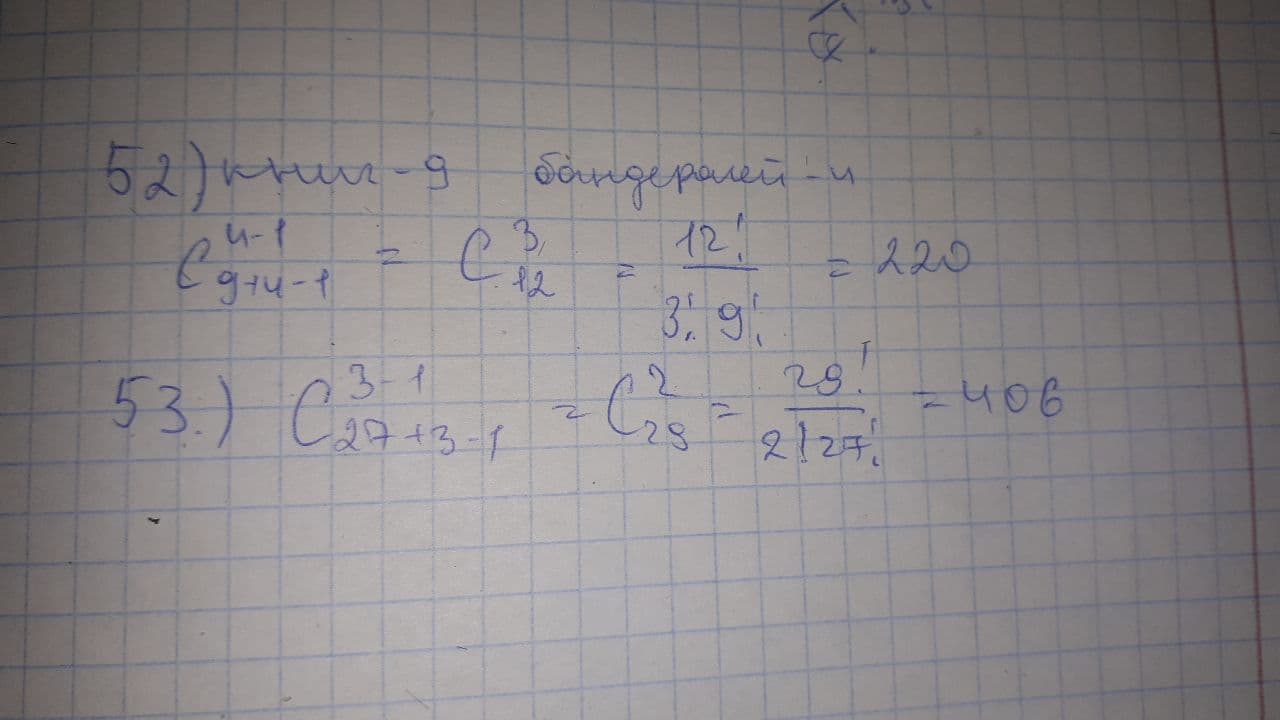 52) книг - 9 бандеролей - 4
C_{9+4-1}^{4-1} = C_{12}^{3} = 12! / 3! 9! = 220
53.) C_{27+3-1}^{3-1} = C_{29}^{2} = 29! / 2! 27! = 406